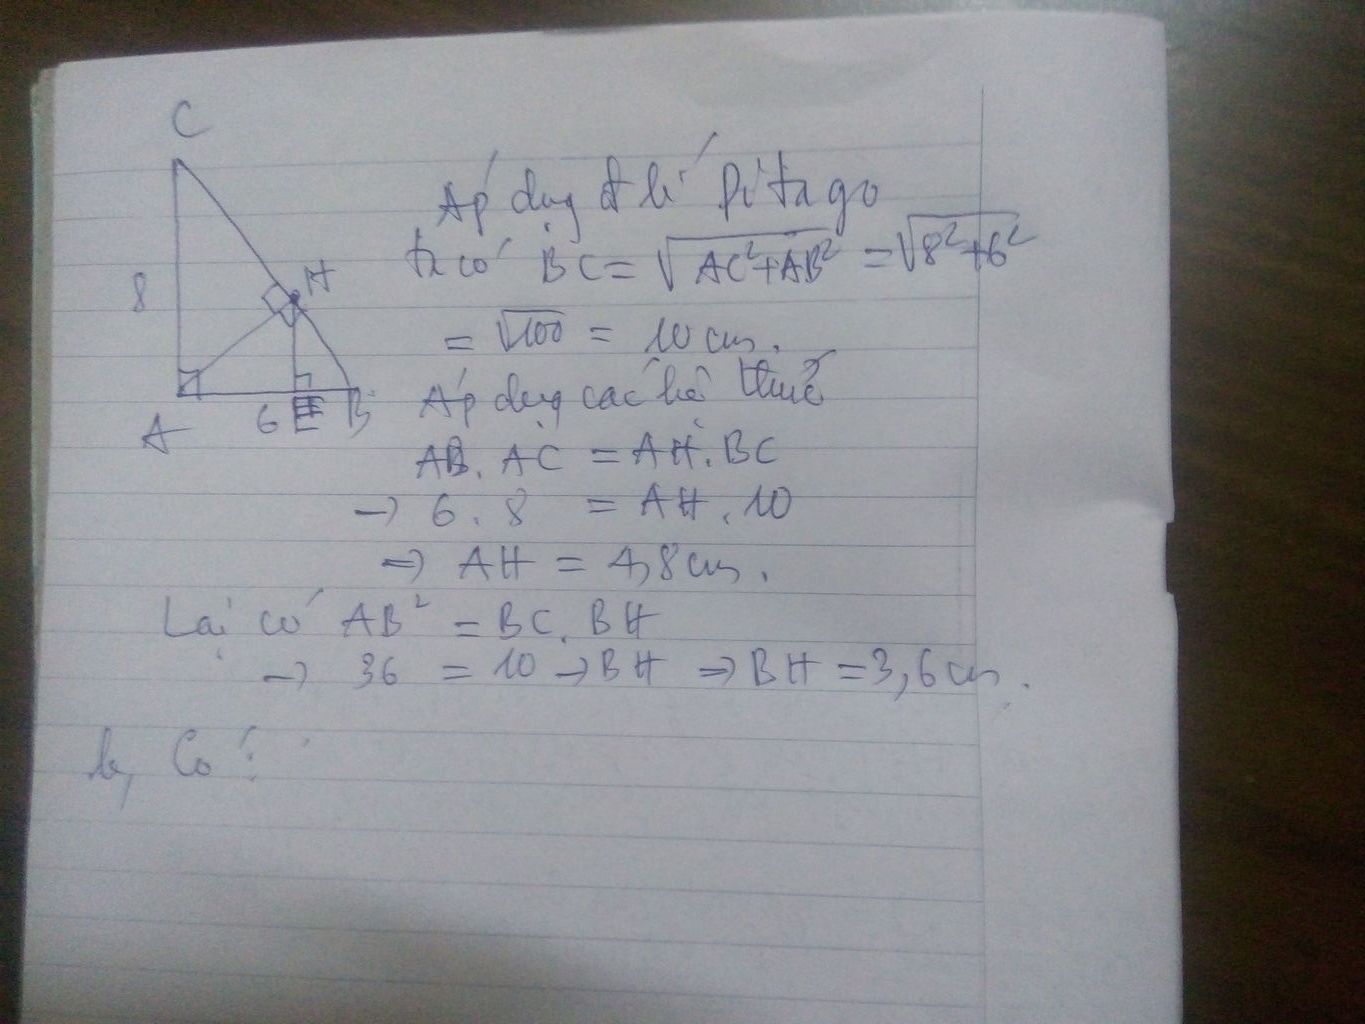 C
Áp dụng đ lí Pitago
ta có BC = √AC²+AB² = √8²+6²
H
8
= √100 = 10 cm.
A 6 E B
Áp dụng các hệ thức
AB. AC = AH. BC
→ 6. 8 = AH. 10
⇒ AH = 4,8cm.
Lại có AB² = BC. BH
→ 36 = 10 → BH ⇒ BH = 3,6 cm.
b, Có: